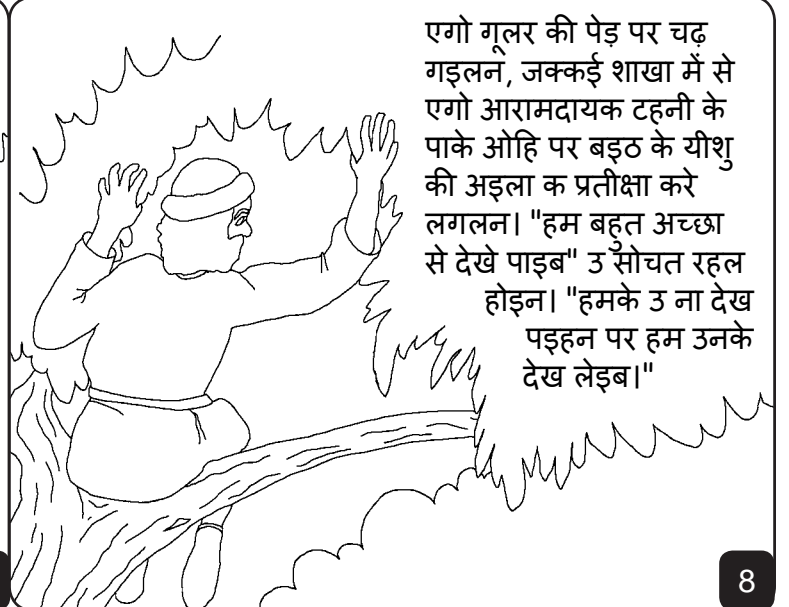 एगो गूलर की पेड़ पर चढ़
गइलन, जक्कई शाखा में से
एगो आरामदायक टहनी के
पाके ओहि पर बइठ के यीशु
की अइला क प्रतीक्षा करे
लगलन। "हम बहुत अच्छा
से देखे पाइब" उ सोचत रहल
होइन। "हमके उ ना देख
पइहन पर हम उनके
देख लेइब।"
8